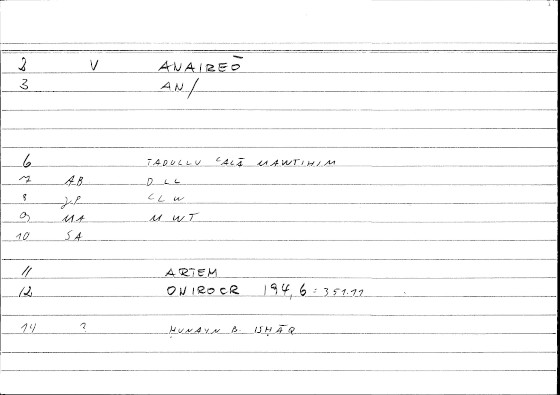 2 V ANAIREŌ
3 AN/
6 TADULLU ʿALĀ MAWTIHIM
7 AB DLL
8 JP ʿLW
9 MA MWT
10 SA
11 ARTEM
12 ONIROCR 194,6 = 351.11
14 ? ḤUNAYN B. ISḤĀQ